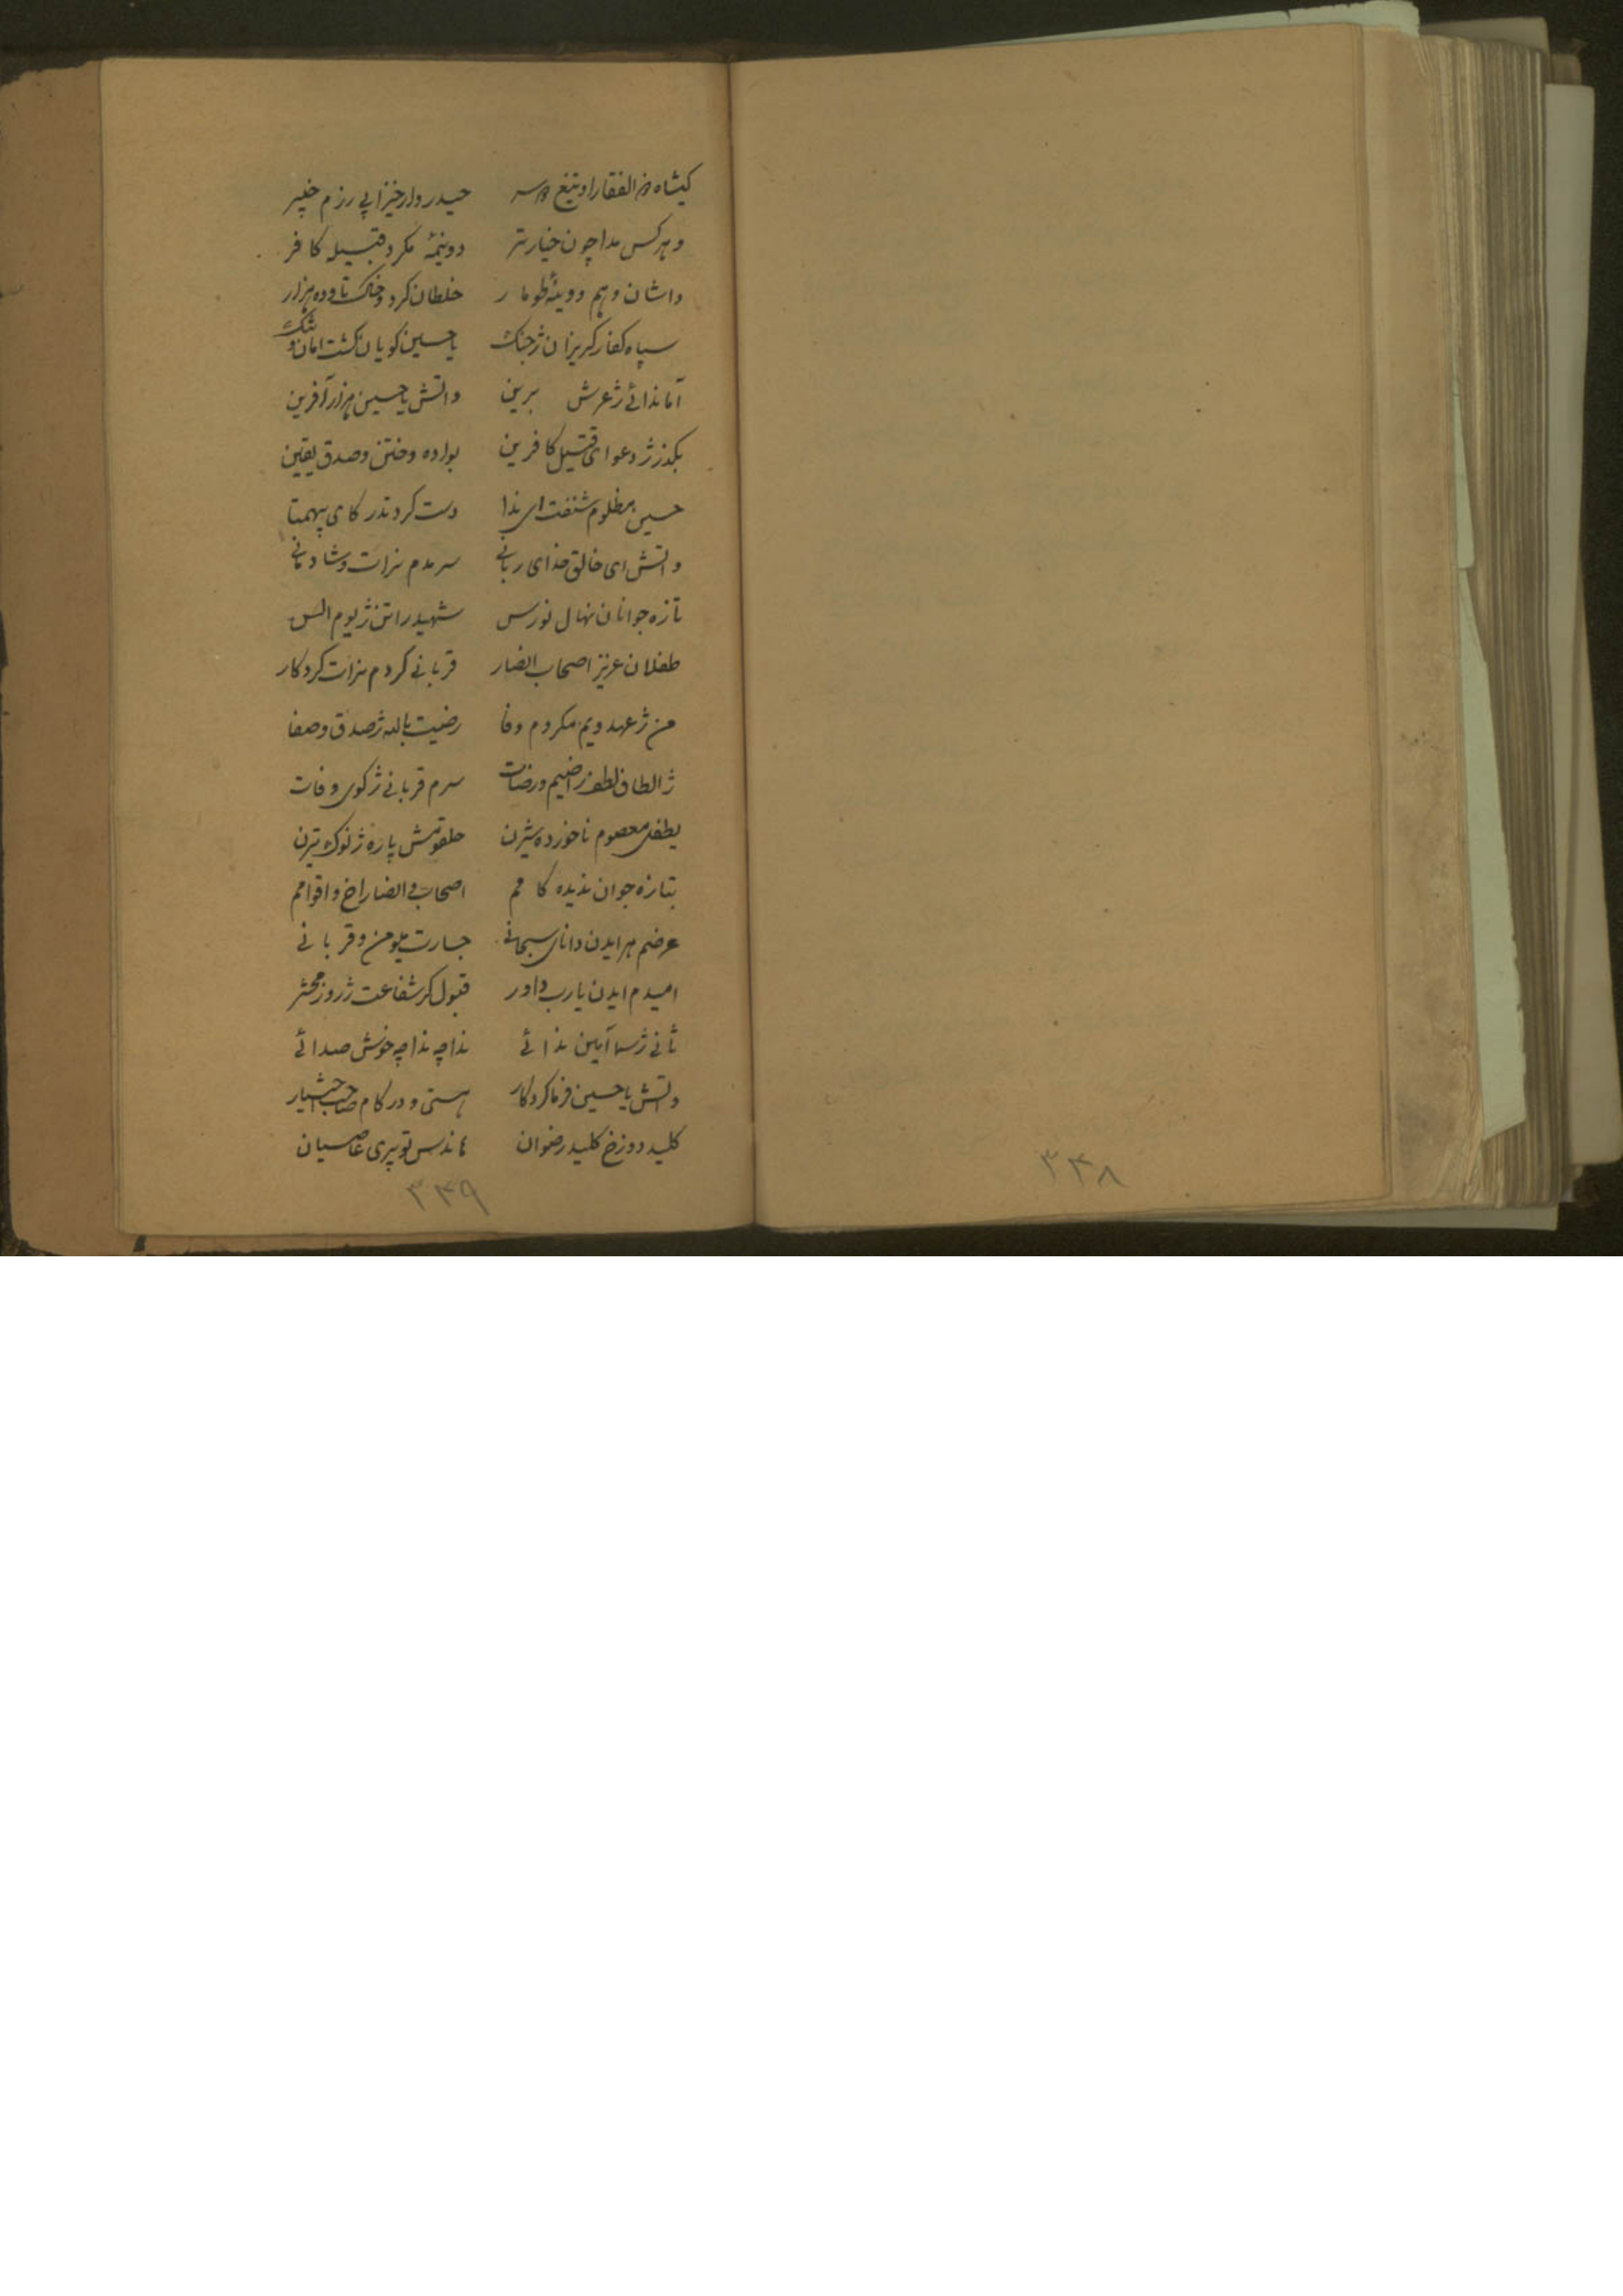 کیشاه ذوالفقار او تیغ دوسر حیدر وار خیزا پی رزم خیبر
و هر کس مدا چون خیارتر دونیمهٔ مکرد قبیله کافر
داشان وهم دوینهٔ طومار غلطان کرد وخاک تا وده هزار
سپاه کفار کریزان ژجنک یاحسین کویان کشت امان و تنک
آما ندائے ژعرش برین واتش یاحسین هزار آفرین
بکذر ژدعوای قتیل کافرین بواده وختن وصدق یقین
حسین مظلوم شنفت ای ندا دست کرد ندر کای بیهمتا
واتش ای خالق خدای ربانے سر مدم نرات وشادمانے
تازه جوانان نهال نورس شهید راتن ژیوم الس
طفلان عزیز اصحاب انصار قربانے کردم نرات کردکار
من ژعهد ویم مکردم وفا رضیت بالله ژصدق وصفا
ژالطاف لطف راضیم ورضات سرم قربانے ژکوی وفات
بطفل معصوم ناخورده شیرن حلقومش پاره ژنوک تیرن
بتازه جوان ندیده کامم اصحاب و انصار اخ واقوامم
عرضم هر ایدن دانای سبحانے جسارت بلومن وقربانے
امیدم ایدن یارب داور قبول کر شفاعت ژروز محشر
ثانے ژسما آمین ندائے نداچه نداچه خوش صدائے
واتش یاحسین فرما کردکار هستی و درکام صاحب اختیار
کلید دوزخ کلید رضوان ماندس تو پری عاصیان
۳۴۹
۳۴۸